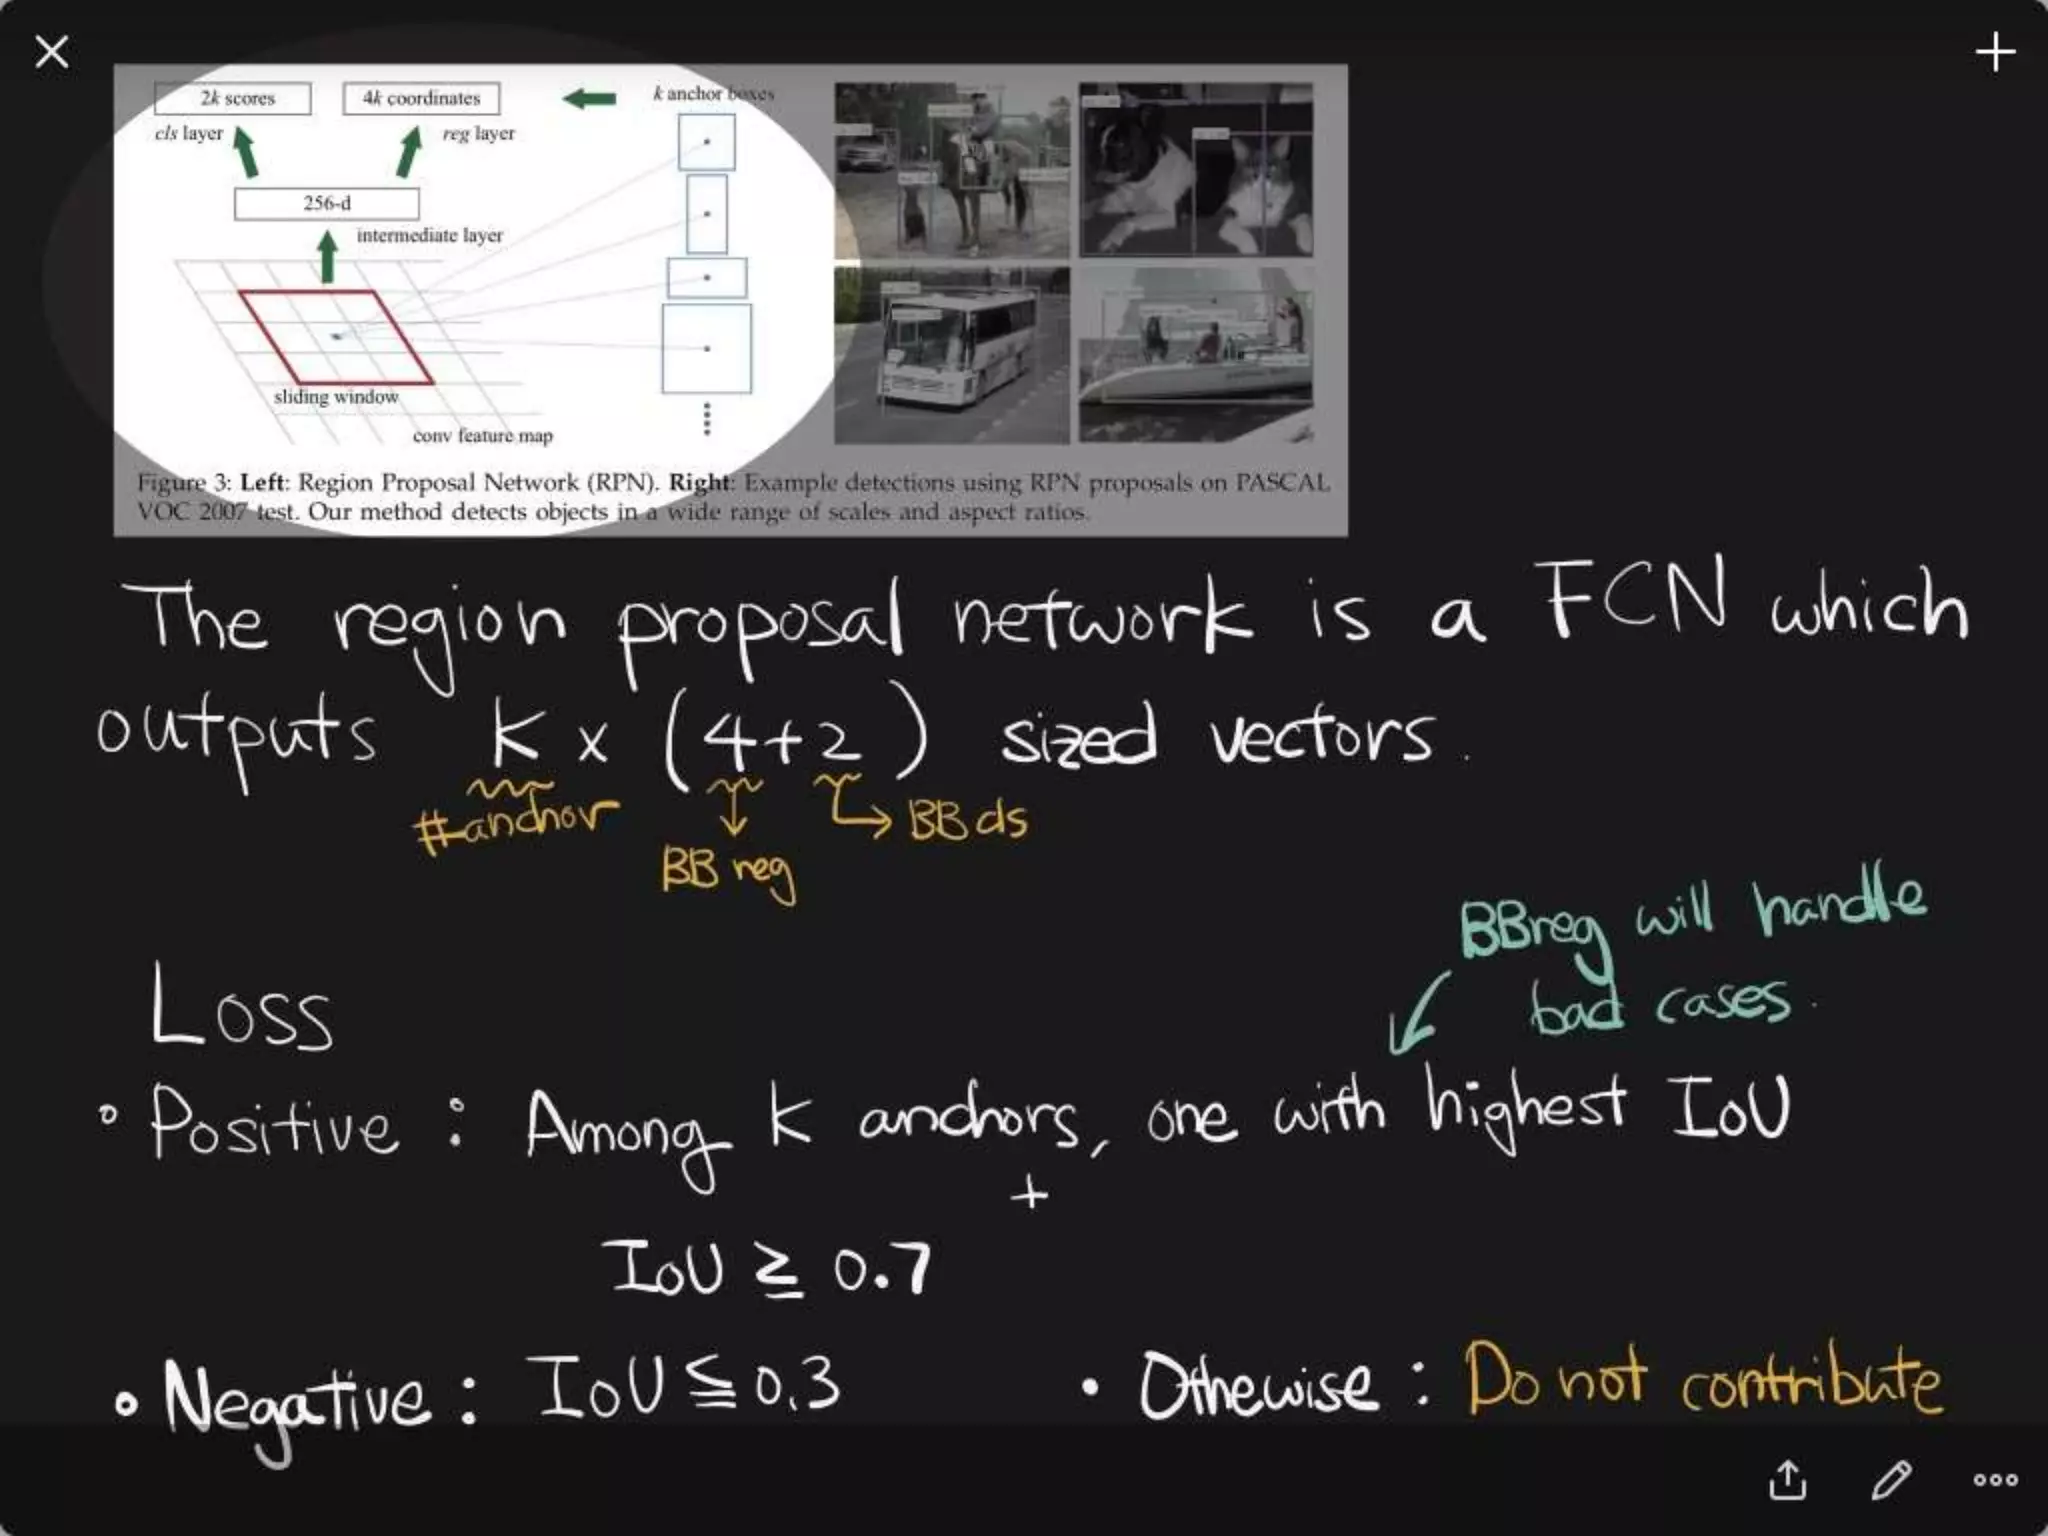 2k scores
4k coordinates
k anchor boxes
cls layer
reg layer
256-d
intermediate layer
sliding window
conv feature map
Figure 3: Left: Region Proposal Network (RPN). Right: Example detections using RPN proposals on PASCAL
VOC 2007 test. Our method detects objects in a wide range of scales and aspect ratios.
The region proposal network is a FCN which
outputs k x (4+2) sized vectors.
#anchor
BB reg
BB cls
BBreg will handle
bad cases.
Loss
• Positive : Among k anchors, one with highest IoU
+
IoU ≧ 0.7
• Negative : IoU ≦ 0.3
• Othewise : Do not contribute